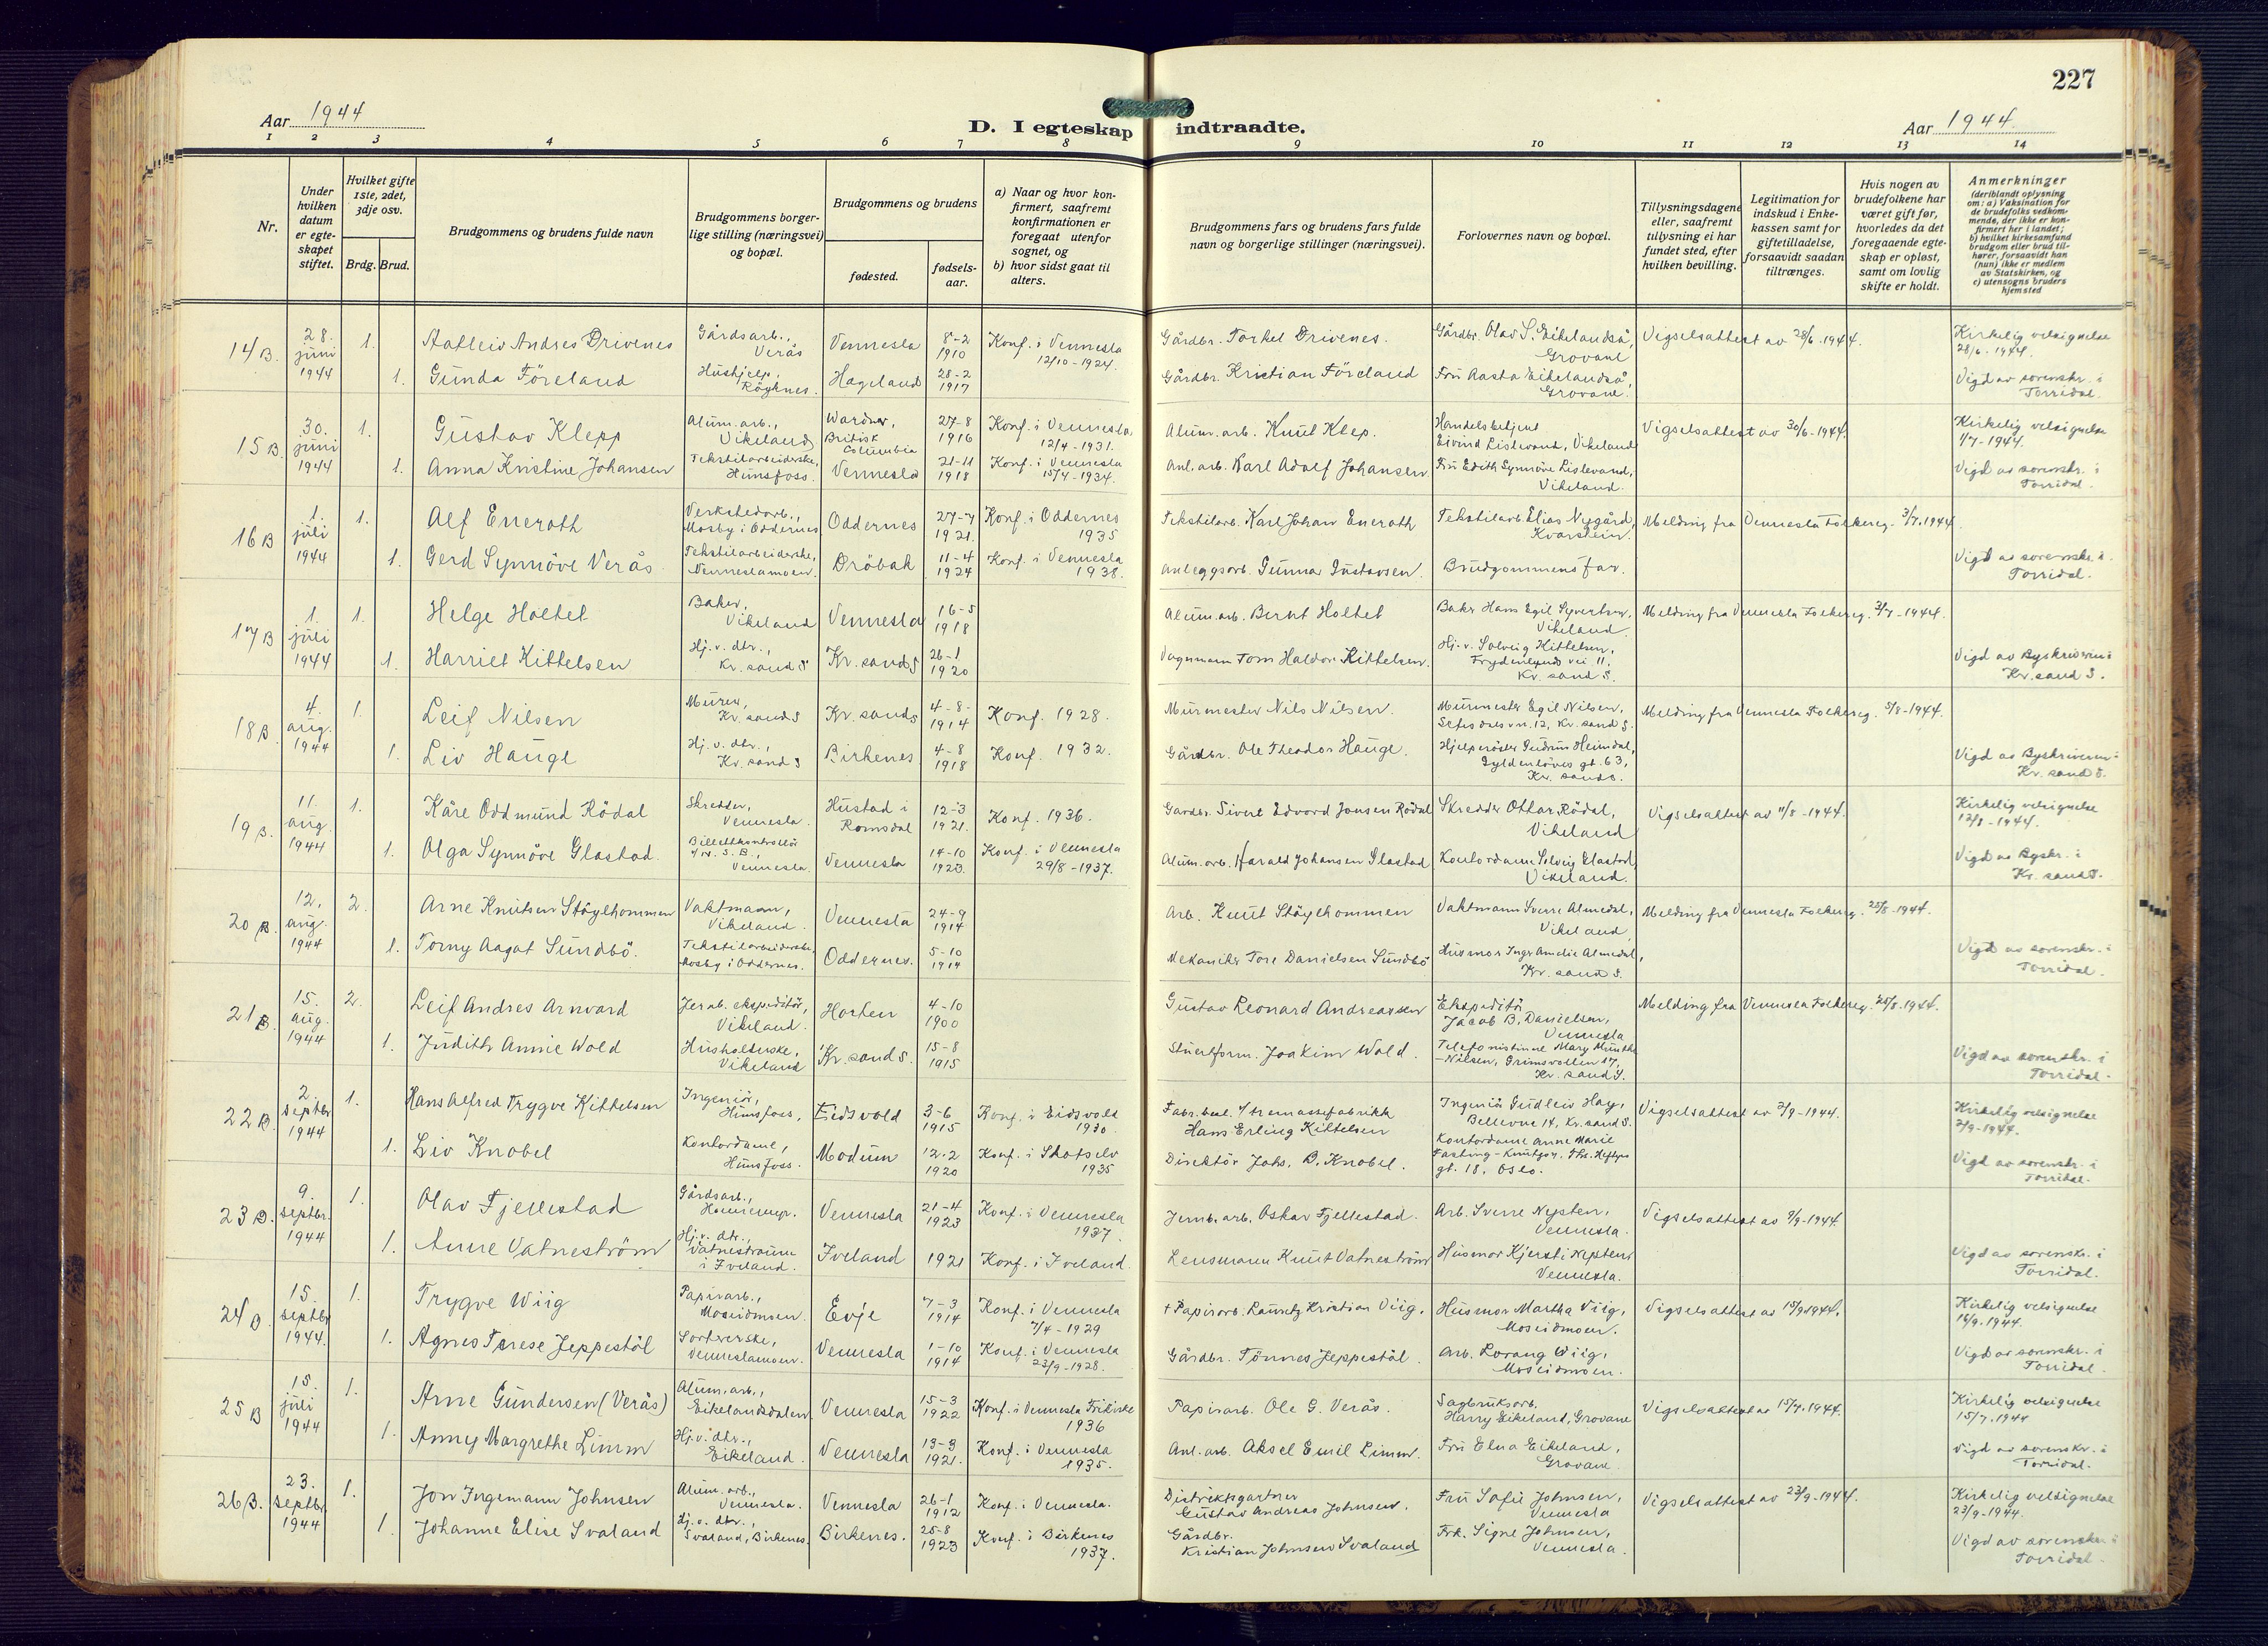 227
Aar 1944
D. I egteskap indtraadte.
Aar 1944.
1 2 3 4 5 6 7 8 9 10 11 12 13 14
Nr.
Under hvilken datum er egteskapet stiftet.
Hvilket gifte 1ste, 2det, 3dje osv.
Brdg. Brud.
Brudgommens og brudens fulde navn
Brudgommens borgerlige stilling (næringsvei) og bopæl.
Brudgommens og brudens
fødested.
fødselsaar.
a) Naar og hvor konfirmert, saafremt konfirmationen er foregaat utenfor sognet, og
b) hvor sidst gaat til alters.
Brudgommens fars og brudens fars fulde navn og borgerlige stillinger (næringsvei).
Forlovernes navn og bopæl.
Tillysningsdagene eller, saafremt tillysning ei har fundet sted, efter hvilken bevilling.
Legitimation for indskud i Enkekassen samt for giftetilladelse, forsaavidt saadan tiltrænges.
Hvis nogen av brudefolkene har været gift før, hvorledes da det foregaaende egteskap er opløst, samt om lovlig skifte er holdt.
Anmerkninger
(deriblandt oplysning om: a) Vaksination for de brudefolks vedkommende, der ikke er konfirmert her i landet; b) hvilket kirkesamfund brudgom eller brud tilhører, forsaavidt han (hun) ikke er medlem av Statskirken, og c) utensogns bruders hjemsted
14 B. 28. juni 1944 1. Aatleiv Andres Drivenes Gårdsarb., Verås Vennesla 8-2 1910 Konf. i Vennesla 12/10-1924. Gårdbr. Torkel Drivenes. Gårdbr. Olav S. Eikelandså, Grovane Vigselsattest av 28/6-1944. Kirkelig velsignelse 28/6-1944.
1. Gunda Föreland Hushjelp, Röyknes. Hægeland 28-2 1917 Gårdbr. Kristian Föreland Fru Aasta Eikelandså, Grovane. Vigd av sorenskr. i Torridal.
15 B. 30. juni 1944 1. Gustav Klepp Alum.arb., Vikeland Wardner, British Columbia 27-8 1916 Konf. i Vennesla 12/4-1931. Alum.arb. Knut Klep. Handelsbetjent Eivind Lislevand, Vikeland Vigselsattest av 30/6-1944. Kirkelig velsignelse 1/7-1944.
1. Anna Kristine Johansen Tekstilarbeiderske, Hunsfoss. Vennesla 21-11 1918 Konf. i Vennesla 15/4-1934. Anl.arb. Karl Adolf Johansen. Fru Edith Synnöve Lislevand, Vikeland. Vigd av sorenskr. i Torridal.
16 B 1. juli 1944 1. Alf Eneroth Verkstedarb., Mosby i Oddernes Oddernes 27-7 1921. Konf. i Oddernes 1935 Tekstilarb. Karl Johan Eneroth Tekstilarb. Elias Nygård, Kvarstein. Melding fra Vennesla Folkereg. 3/7-1944.
1. Gerd Synnöve Verås. Tekstilarbeiderske, Venneslamoen. Dröbak 11-4 1924 Konf. i Vennesla 1938. Anleggsarb. Gunnar Gustavsen. Brudgommens far. Vigd av sorenskr. i Torridal.
17 B 1. juli 1944 1. Helge Holtet Baker, Vikeland Vennesla 16-5 1918 Alum.arb. Bernt Holtet Baker Hans Egil Syvertsen, Vikeland. Melding fra Vennesla Folkereg. 3/7-1944.
1. Harriet Kittelsen Hj.v. dtr., Kr.sand S Kr.sand S 26-1 1920 Vognmann Tom Haldor Kittelsen. Hj.v. Solveig Kittelsen, Frydenlunds vei 11. Kr.sand S. Vigd av Byskriveren i Kr.sand S.
18 B. 4. aug. 1944 1. Leif Nilsen Murer, Kr.sand S Kr.sand S 4-8- 1914 Konf. 1928. Murmester Nils Nilsen. Murmester Egil Nilsen, Setesdalsvn. 12, Kr.sand S. Melding fra Vennesla Folkereg. 5/8-1944.
1. Liv Hauge Hj.v. dtr., Kr.sand S Birkenes 4-8 1918 Konf. 1932. Gårdbr. Ole Theodor Hauge. Hjelpesöster Gudrun Heimdal, Gyldenlöves gt. 63, Kr.sand S. Vigd av Byskriveren i Kr.sand S.
19 B. 11. aug. 1944 1. Kåre Oddmund Rödal Skredder, Vennesla. Hustad i Romsdal 12-3 1921. Konf. 1936. Gårdbr. Sivert Edvard Jonsen Rödal Skredder Ottar Rödal, Vikeland Vigselsattest av 11/8-1944. Kirkelig velsignelse 12/8-1944.
1. Olga Synnöve Glastad. Billettkontrollör v/N.S.B., Vennesla. Vennesla 14-10 1923. Konf. i Vennesla 29/8-1937. Alum.arb. Harald Johansen Glastad Kontordame Solveig Glastad Vikeland. Vigd av Byskr. i Kr.sand S.
20 B. 12. aug. 1944 2. Arne Knutsen Stöylhommen Vaktmann, Vikeland. Vennesla 24-9 1914 Arb. Knut Stöylhommen Vaktmann Sverre Almedal, Vikeland. Melding fra Vennesla Folkereg. 25/8-1944.
1. Torny Aagot Sundbö. Tekstilarbeiderske, Mosby i Oddernes. Oddernes. 5-10 1914 Mekaniker Tore Danielsen Sundbö Husmor Inger Amelie Almedal, Kr.sand S. Vigd av sorenskr. i Torridal.
21 B. 15. aug. 1944 2. Leif Andres Arnvard Jernb.ekspeditör, Vikeland. Horten 4-10 1900 Gustav Leonard Andreassen Ekspeditör Jacob B. Danielsen, Vennesla Melding fra Vennesla Folkereg. 25/8-1944.
1. Judith Annie Wold Husholderske, Vikeland Kr.sand S. 15-8 1915 Stuertform. Joakim Wold. Telefonistinne Mary Munthe-Nilsen, Grimsvollen 17, Kr.sand S. Vigd av sorenskr. i Torridal.
22 B. 2. septbr 1944 1. Hans Alfred Trygve Kittelsen Ingeniör, Hunsfoss, Eidsvold 3-6 1915 Konf. i Eidsvold 1930. Fabr.best. v/tremassefabrikk Hans Erling Kittelsen Ingeniör Gudleiv Hay, Bellevue 14, Kr.sand S. Vigselsattest av 2/9-1944. Kirkelig velsignelse 2/9-1944.
1. Liv Knobel Kontordame, Hunsfoss. Modum 12-2 1920 Konf. i Skotselv 1935 Direktör Johs. B. Knobel. Kontordame Anne Marie Fasting- Ths. Heftyes gt. 18, Oslo. Vigd av sorenskr. i Torridal.
23 B. 9. septbr. 1944 1. Olav Fjellestad Gårdsarb., Homremyr. Vennesla 21-4 1923 Konf. i Vennesla 1937. Jernb.arb. Oskar Fjellestad. Arb. Sverre Nepsten, Vennesla. Vigselsattest av 9/9-1944.
1. Anne Vatneström Hj.v. dtr., Vatnestraum i Iveland. Iveland 1921 Konf. i Iveland. Lensmann Knut Vatneström Husmor Kjersti Nepsten, Vennesla. Vigd av sorenskr. i Torridal.
24 B. 15. septbr 1944. 1. Trygve Wiig Papirarb., Moseidmoen. Evje 7-3 1914 Konf. i Vennesla 7/4-1929 † Papirarb. Lauretz Kristian Viig. Husmor Martha Viig, Moseidmoen. Vigselsattest av 15/9-1944. Kirkelig velsignelse 16/9.1944.
1. Agnes Terese Jeppestöl Sorterske, Venneslamoen. Vennesla 1-10 1914 Konf. i Vennesla 23/9-1928. Gårdbr. Tönnes Jeppestöl. Arb. Lorang Wiig, Moseidmoen. Vigd av sorenskr. i Torridal.
25 B 15. juli 1944 1. Arne Gundersen (Verås) Alum.arb., Eikelandsdalen. Vennesla 15-3 1922 Konf. i Vennesla Frikirke 1936 Papirarb. Ole G. Verås. Sagbruksarb. Harry Eikeland, Grovane Vigselsattest av 15/7.1944. Kirkelig velsignelse 15/7.1944
1. Anny Margrethe Limm Hj.v. dtr., Eikeland. Vennesla 13-9 1921. Konf. i Vennesla 1935. Anl.arb. Aksel Emil Limm. Fru Elna Eikeland, Grovane. Vigd av sorenskr. i Torridal.
26 B. 23. septbr. 1944 1. Jon Ingemann Johnsen Alum.arb., Vennesla. Vennesla 26-1 1912 Konf. i Vennesla. Distriktsgartner Gustav Andreas Johnsen. Fru Sofie Johnsen, Vennesla Vigselsattest av 23/9-1944. Kirkelig velsignelse 23/9-1944.
1. Johanne Elise Svaland Hj.v. dtr., Svaland, Birkenes. Birkenes. 25-8 1923 Konf. i Birkenes 1937. Gårdbr. Kristian Johnsen Svaland Frk. Signe Johnsen, Vennesla. Vigd av sorenskr. i Torridal.